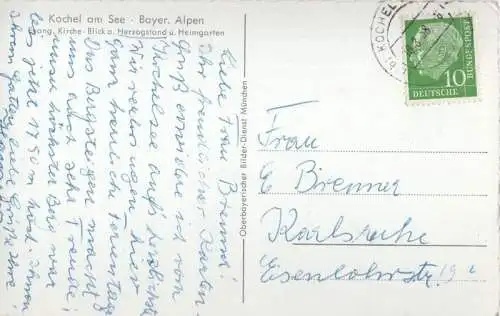 Kochel am See - Bayer. Alpen
Evang. Kirche - Blick a. Herzogstand u. Heimgarten
Liebe Frau Brenner!
Ihr freundlicher Karten-
gruß erwidere ich vom
Kochelsee auf's herzlichste
Wir verbringen hier
ganz herrliche Ferientage
Das Bergsteigen macht
uns auch sehr Freude;
unser höchster Berg war
bis jetzt 1790 m hoch. Ihnen
Ihrem Gatten liebe Grüße Ihre
Oberbayerischer Bilder-Dienst München
KOCHEL
10
DEUTSCHE BUNDESPOST
Frau
E Brenner
Karlsruhe
Eisenlohrstr 19